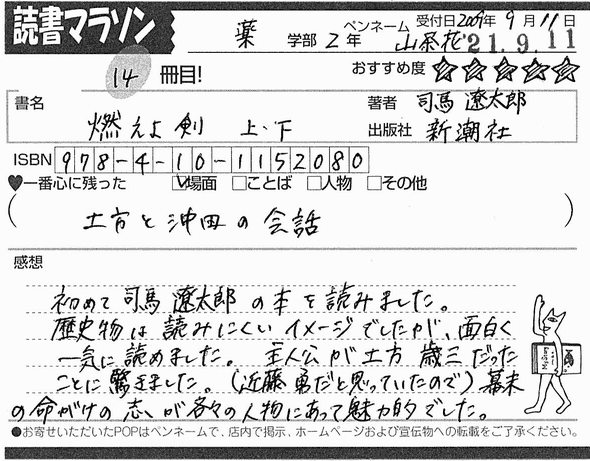 読書マラソン
薬 学部 2年 ペンネーム 山茶花 受付日2009年9月11日
'21.9.11
14 冊目! おすすめ度 ☆☆☆☆☆
書名 燃えよ剣 上・下
著者 司馬遼太郎
出版社 新潮社
ISBN 978-4-10-1152080
♥一番心に残った ☑場面 □ことば □人物 □その他
( 土方と沖田の会話 )
感想
初めて司馬遼太郎の本を読みました。
歴史物は読みにくいイメージでしたが、面白く
一気に読めました。 主人公が土方歳三だった
ことに驚きました。(近藤勇だと思っていたので) 幕末
の命がけの志が各々の人物にあって魅力的でした。
●お寄せいただいたPOPはペンネームで、店内で掲示、ホームページおよび宣伝物への転載をご了承ください。